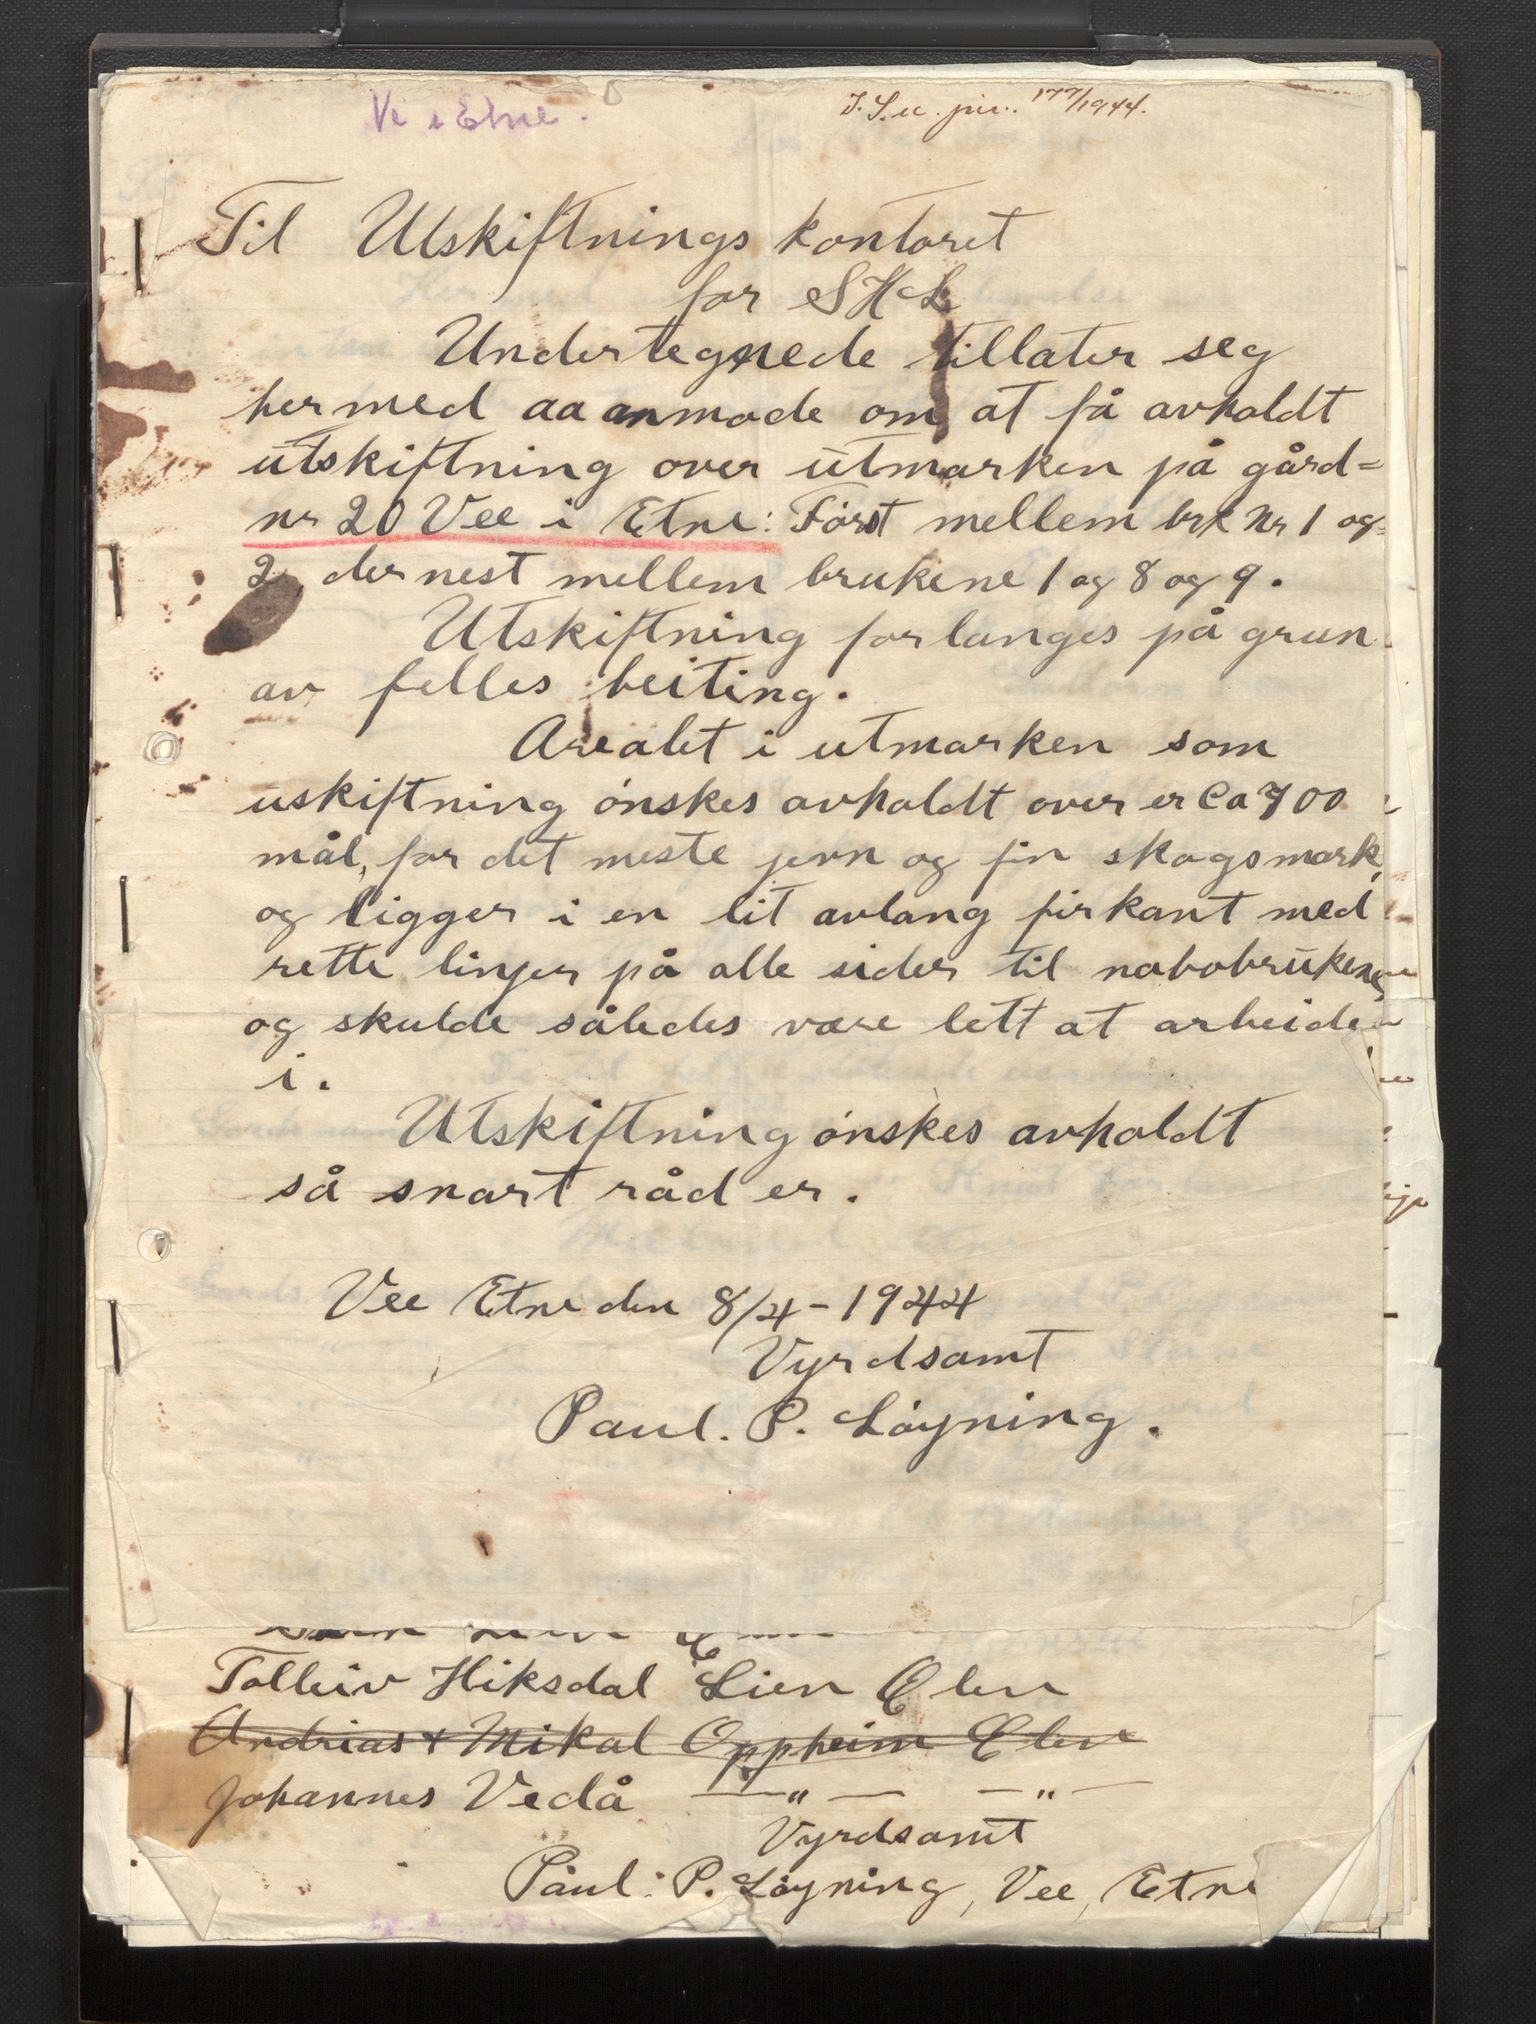 Ve i Etne.
177/1944.
Til Utskiftnings kontoret
for SHL
Undertegnede tillater seg
hermed aa anmode om at få avholdt
utskiftning over utmarken på gård=
nr 20 Vee i Etne: Først mellem brk Nr 1 og
2, dernest mellem brukene 1 og 8 og 9.
Utskiftning forlanges på grun
av felles beiting.
Arealet i utmarken som
uskiftning ønskes avholdt over er Ca 700
mål, for det meste jevn og fin skogsmark,
og ligger i en lit avlang firkant med
rette linjer på alle sider til nabobrukene,
og skulde således være lett at arbeide
i.
Utskiftning ønskes avholdt
så snart råd er.
Vee Etne den 8/4-1944
Vyrdsamt
Paul. P. Løyning.
Tolleiv Hiksdal Lien Ølen
Andrias + Mikal Oppheim Ølen
Johannes Vedå —"— —"—
Vyrdsamt
Paul. P. Løyning, Vee, Etne